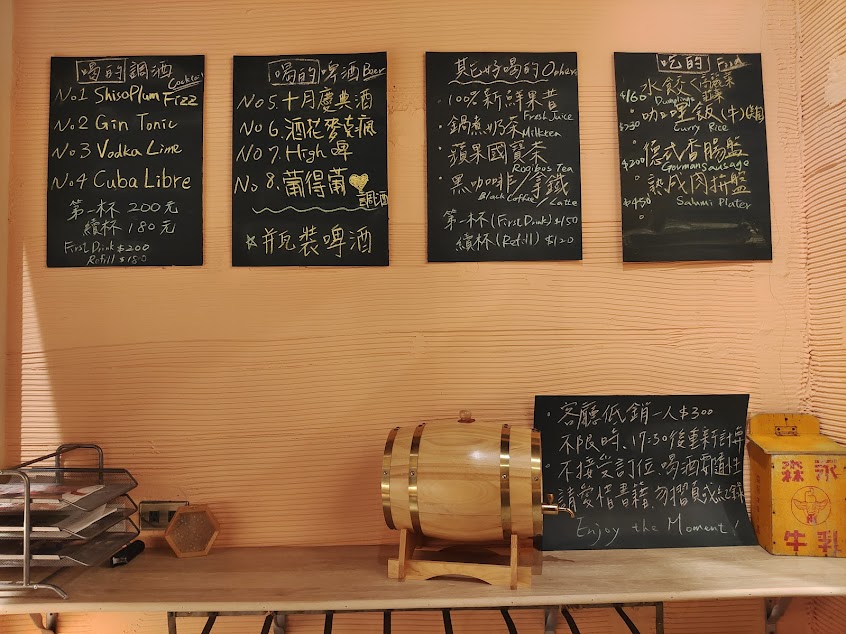 喝的調酒
Cocktail
No.1 ShisoPlum Fizz
No.2 Gin Tonic
No.3 Vodka Lime
No.4 Cuba Libre
第一杯 200元
續杯 180元
First Drink $200
Refill $180
喝的啤酒 Beer
No 5. 十月慶典酒
No 6. 酒花麥克瘋
No 7. High 啤
No 8. 葡得葡
調酒
☆ 瓶裝啤酒
其它好喝的 Others
100% 新鮮果昔
Fresh Juice
鍋煮奶茶
Milktea
蘋果國寶茶
Rooibos Tea
黑咖啡/拿鐵
Black Coffee/Latte
第一杯 (First Drink) $150
續杯 (Refill) $120
吃的 Food
水餃<高麗菜
韭菜
$160 Dumplings
咖哩飯(牛)
$230 Curry Rice
德式香腸盤
$200 German Sausage
熟成肉拼盤
$450 Salami Plater
客廳低銷一人$300
不限時、17:30後重新計算
不接受訂位、喝酒需隨性
請愛惜書籍、勿摺頁或
Enjoy the Moment!
森永
牛乳